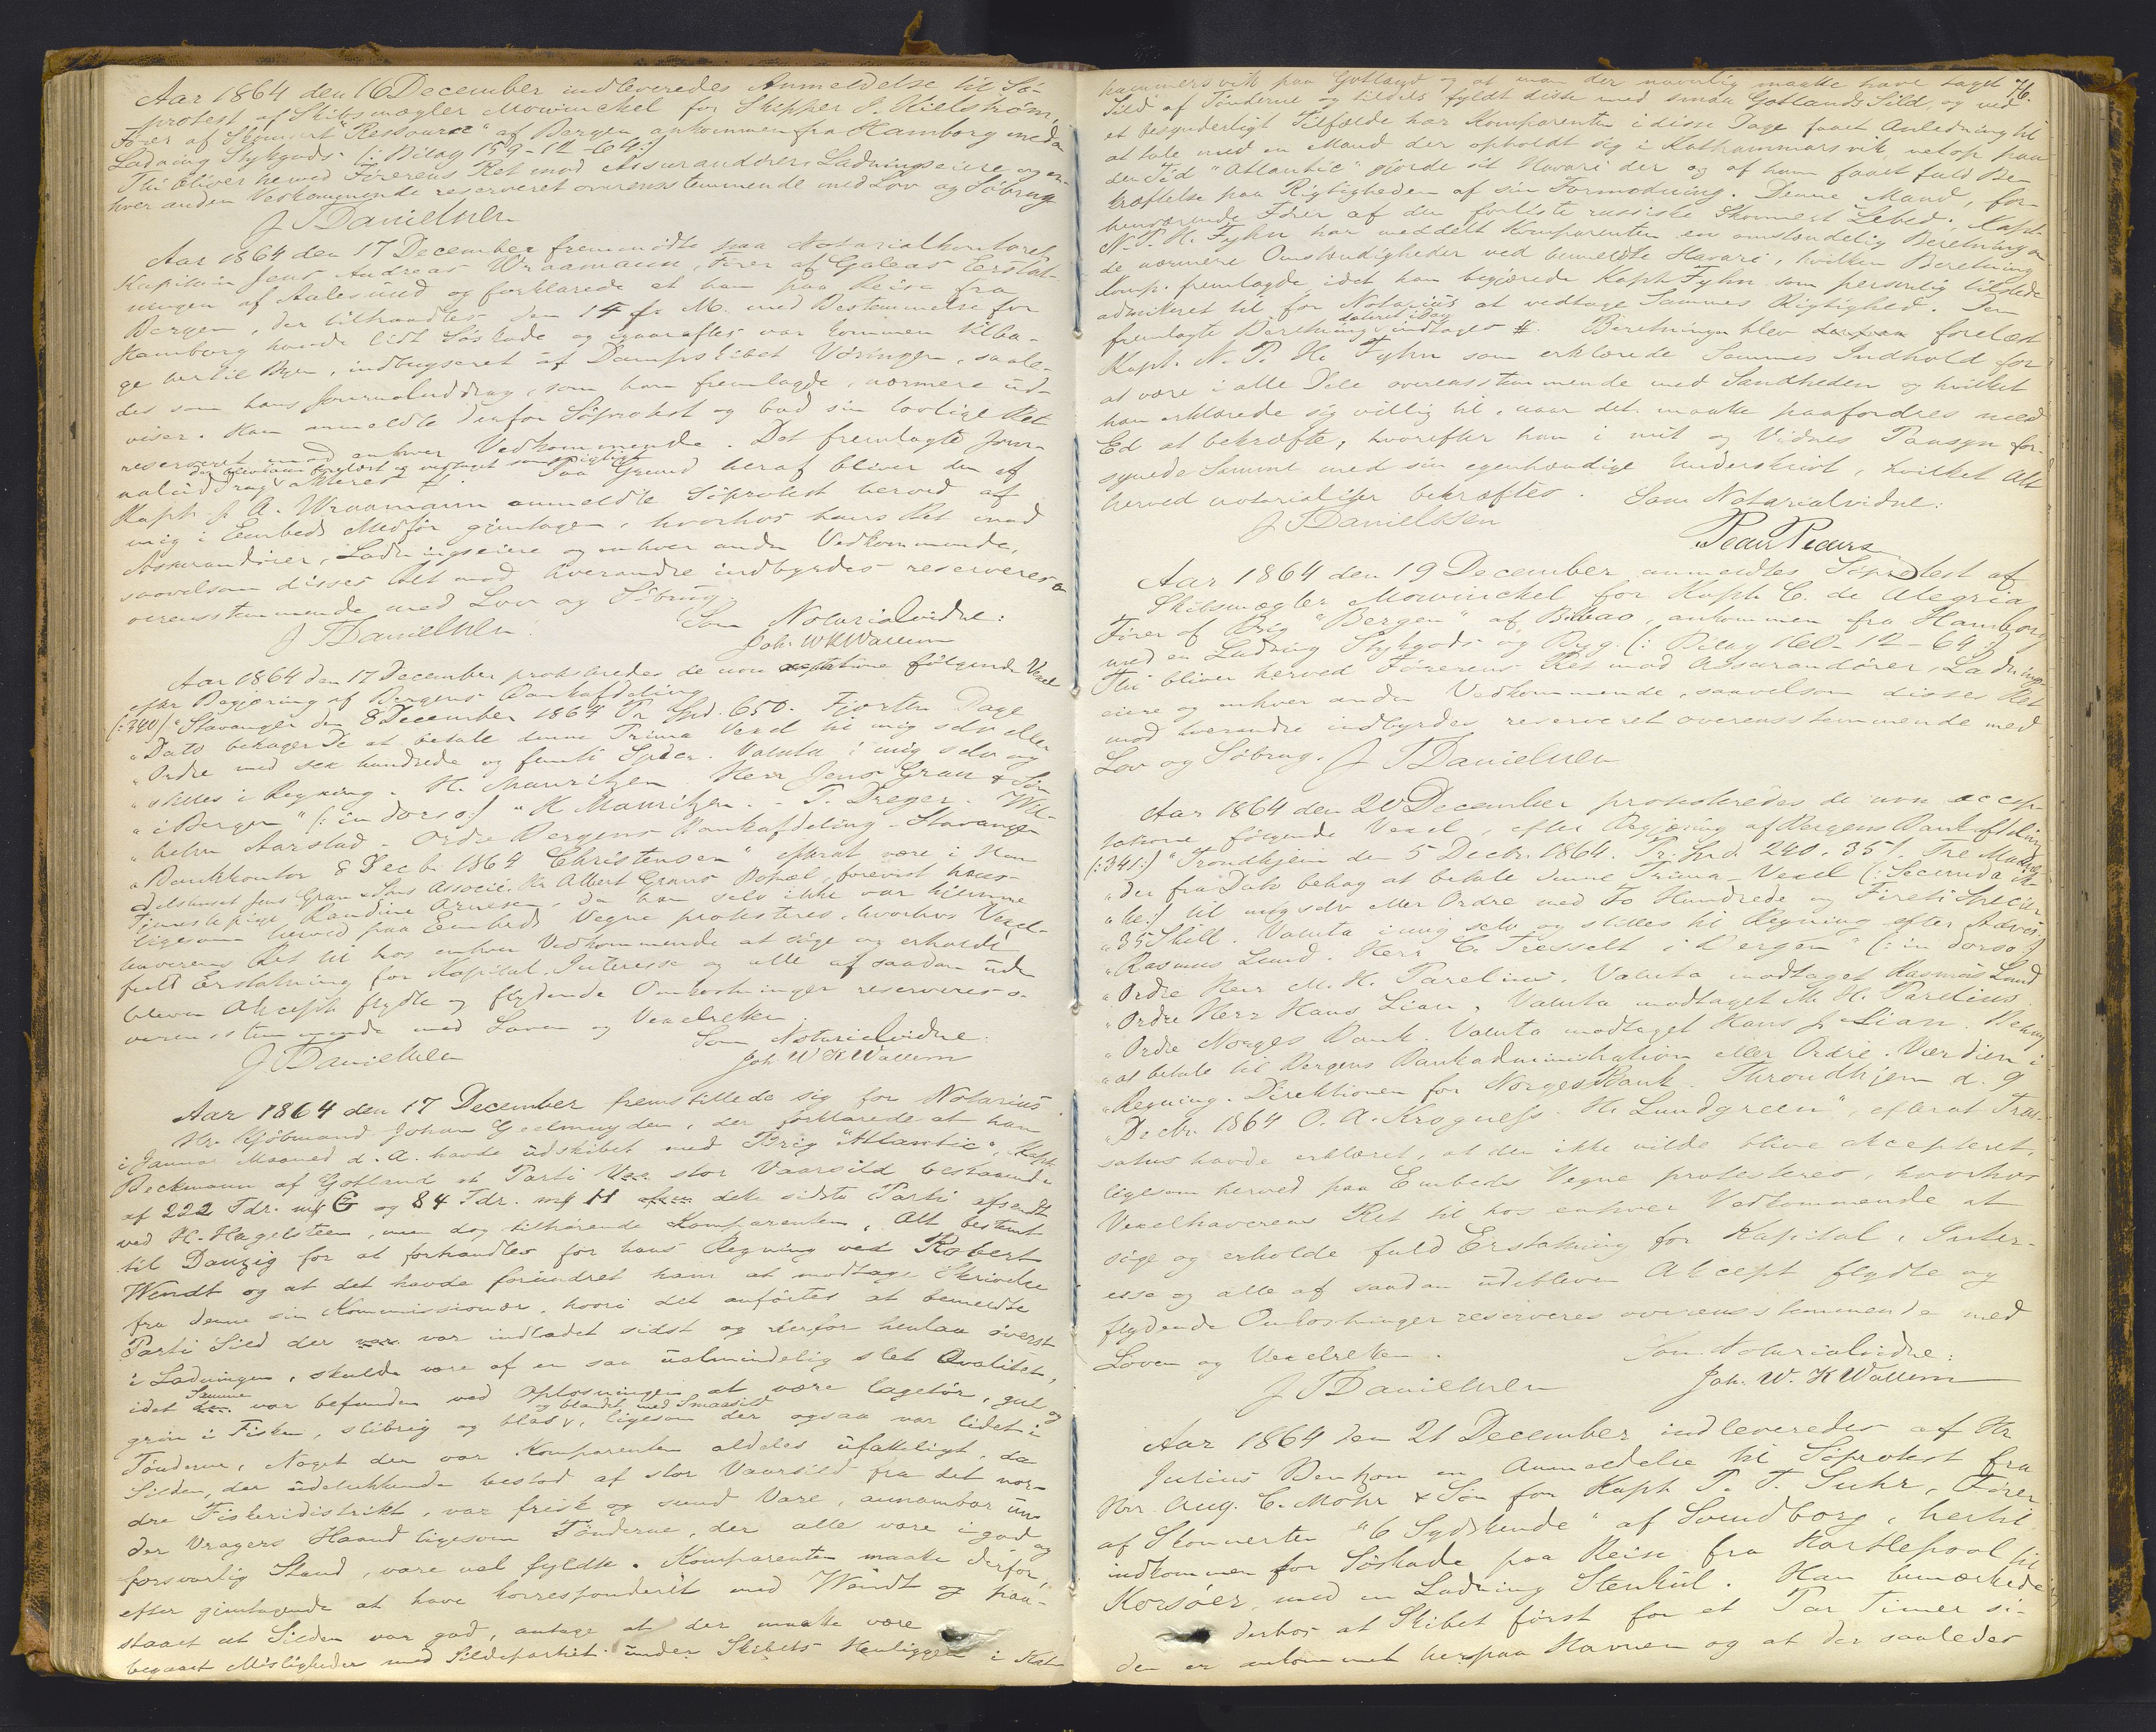 Aar 1864 den 16 December indleveredes Anmeldelse til Sö-
protest af Skibsmægler Mowinckel for Skipper J. Kielström,
Förer af Skonnert "Ressource" af Bergen ankommen fra Hamborg med en
Ladning Stykgods (: Bilag 159-12-64:)
Thi bliver herved Förerens Ret mod Assurandörer, Ladningseiere og en-
hver anden Vedkommende reserveret overensstemmende med Lov og Söbrug
J TDanielsen
Aar 1864 den 17 December fremmödte paa Notarialkontoret
Kapitain Jens Andreas Wraamann, Förer af Galeas Erstat-
ningen af Aalesund og forklarede at han paa Reise fra
Bergen, der tiltraadtes den 14 ds M. med Bestemmelse for
Hamborg havde lidt Söskade og igaaraftes var kommen tilba-
ge hertil Byen, indbugseret af Dampskibet Vöringen, saale-
des som hans Journaluddrag, som han fremlagde, nærmere ud-
viser. Han anmeldte derfor Söprotest og bad sin lovlige Ret
reserveret mod enhver Vedkommende. Det fremlagte Jour-
der blev ham forelæst og vedtaget som rigtigt
naluddrag akteres #. Paa Grund heraf bliver den af
Kapt. J. A. Wraamann anmeldte Söprotest herved af
mig i Embeds Medför gjentagen, hvorhos hans Ret mod
Assurandörer, Ladningseiere og enhver anden Vedkommende,
saavelsom disses Ret mod hverandre indbyrdes reserveres o-
verensstemmende med Lov og Söbrug.
J TDanielsen. Som Notarialvidne:
Joh. W K Wallem
Aar 1864 den 17 December protesteredes de non acceptatione fölgende Vexel
efter Begjæring af Bergens Bankafdeling
(:340/ "Stavanger den 8 December 1864 Pr Spd. 650. Fjorten Dage
"Dato behager De at betale denne Prima Vexel til mig selv eller
"Ordre med sex hundrede og femti Spdlr. Valuta i mig selv og
"stilles i Regning. H. Mauritzen. Herr Jens Gran & Sön
"i Bergen" (: in dorso:) "H Mauritzen. - T. Dreger. Wil-
"helm Aarstad - Ordre Bergens Bankafdeling - Stavanger
"Bankkontor 8 Decb. 1864 Christensen" efterat være i Han-
delshuset Jens Gran & Söns Associé, Hr Albert Grans Bopæl, forevist hans
Tjenestepige Randine Arnesen, da han selv ikke var hjemme
ligesom herved paa Embeds Vegne protesteres, hvorhos Vexel-
haverens Ret til hos enhver Vedkommende at söge og erholde
fuld Erstatning for Kapital, Interesse og alle af saadan ude
bleven Akcept flydte og flydende Omkostninger reserveres o-
verensstemmende med Loven og Vexelretten.
J TDanielsen Som Notarialvidne:
Joh. W K Wallem
Aar 1864 den 17 December fremstillede sig for Notarius
Hr. Kjöbmand Johan Geelmuyden, der forklarede at han
i Januar Maaned d. A. havde udskibet med Brig "Atlantic", Kapt.
Beckmann af Gotland et Parti stor Vaarsild bestaaende
af 222 Tdr. mk G og 84 Tdr. mk H dette sidste Parti afsendt
ved H. Hagelsteen, men dog tilhörende Komparenten, Alt bestemt
til Danzig for at forhandles for hans Regning ved Robert
Wendt og at det havde forundret ham at modtage Skrivelse
fra denne sin Kommissionær, hvori det anförtes at bemeldte
Parti Sild der var indladet sidst og derfor henlaa överst
i Ladningen, skulde være af en saa ualmindelig slet Qvalitet,
Samme
idet var befunden ved Oplosningen at være lagetör, gul og
og blandet med Smaasild
grön i Fisken, slibrig og blas, ligesom der ogsaa var lidet i
Tönderne, Noget der var Komparenten aldeles ufatteligt, da
Silden, der udelukkende bestod af stor Vaarsild fra det nor-
dre Fiskeridistrikt, var frisk og sund Vare, annambar un-
der Vragers Haand ligesom Tönderne, der alle vare i god og
forsvarlig Stand, vare vel fyldte. Komparenten maatte derfor,
efter gjentagende at have korresponderet med Wendt og paa-
staaet at Silden var god, antage at der maatte være
begaaet Misligheder med Sildepartiet under Skibets Henliggen i Kat-
76.
hammersvik paa Gotland og at man der navnlig maatte have taget
Sild af Tönderne og tildels fyldt disse med smaa Gotlands Sild, og ved
et besynderligt Tilfælde har Komparenten i disse Dage faaet Anledning til
at tale med en Mand der opholdt sig i Kathammarsvik netop paa
den Tid "Atlantic" gjorde sit Havari der og af ham faaet fuld Be-
kræftelse paa Rigtigheden af sin Formodning. Denne Mand, for-
henværende Förer af den forliste russiske Skonnert "Lebed", Kapt.
N. P. H. Fyhn har meddelt Komparenten en omstændelig Beretning om
de nærmere Omstændigheder ved bemeldte Havari, hvilken Beretning
Komp. fremlagde, idet han begjærede Kapt. Fyhn som personlig tilstede
admitteret til for Notarius at vedtage Sammes Rigtighed. Den
dateret i Dag
fremlagte Beretning indtages #. Beretningen blev forelæst
Kapt. N. P. H. Fyhn som erklærede Sammes Indhold for
at være i alle Dele overensstemmende med Sandheden og hvilket
han erklærede sig villig til, naar det maatte paafordres med
Ed at bekræfte, hvorefter han i mit og Vidnes Paasyn for-
synede Samme med sin egenhændige Underskrivt, hvilket Alt
herved notarialiter bekræftes. Som Notarialvidne:
J TDanielssen
Aar 1864 den 19 December anmeldtes Söprotest af
Skibsmægler Mowinckel for Kapt. C. de Alegria
Förer af Brig "Bergen" af Bilbao, ankommen fra Hamborg
med en Ladning Stykgods og Byg. (: Bilag 160-12-64:)
Thi bliver herved Förerens Ret mod Assurandörer, Ladnings-
eiere og enhver anden Vedkommende, saavelsom disses Ret
mod hverandre indbyrdes reserveret overensstemmende med
Lov og Söbrug. J TDanielsen
Aar 1864 den 20 December protesteredes de non accep-
tatione fölgende Vexel, efter Begjæring af Bergens Bankafdeling
(:341:) "Trondhjem den 5 Decbr. 1864. Pr. Spd. 240. 35 /. Tre Maane-
"der fra Dato behag at betale denne Prima-Vexel (: Secunda ik-
"ke:) til mig selv eller Ordre med To Hundrede og Fireti Specier
"35 Skill. Valuta i mig selv og stilles til Regning efter Advis.
"Rasmus Lund. Herr C. Tesselt i Bergen" (: in dorso:)
"Ordre Herr M. H. Parelius. Valuta modtaget Rasmus Lund
"Ordre Herr Hans Lian. Valuta modtaget M. H. Parelius.
"Ordre Norges Bank. Valuta modtaget Hans J. Lian. Behag
"at betale til Bergens Bankadministration eller Ordre. Værdien i
"Regning. Direktionen for Norges Bank. Throndhjem d. 9
"Decbr. 1864 O. A. Krogness. H. Lundgreen", efterat Tras-
satus havde erklæret, at den ikke vilde blive akcepteret,
ligesom herved paa Embeds Vegne protesteres, hvorhos
Vexelhaverens Ret til hos enhver Vedkommende at
söge og erholde fuld Erstatning for Kapital, Inter-
esse og alle af saadan udebleven Akcept flydte og
flydende Omkostninger reserveres overensstemmende med
Loven og Vexelretten. Som Notarialvidne:
J TDanielsen Joh. W. K Wallem
Aar 1864 den 21 December indleveredes af Hr
Julius Benkow en Anmeldelse til Söprotest fra
Hrr. Aug. C. Mohr & Sön for Kapt P. T. Suhr, Förer
af Skonnerten "6 Sydskende" af Svendborg, hertil
indkommen for Söskade paa Reise fra Hartlepool til
Korsöer, med en Ladning Stenkul. Han bemærkede
derhos at Skibet först for et Par Timer si-
den er ankommet her paa Havnen og at der saaledes